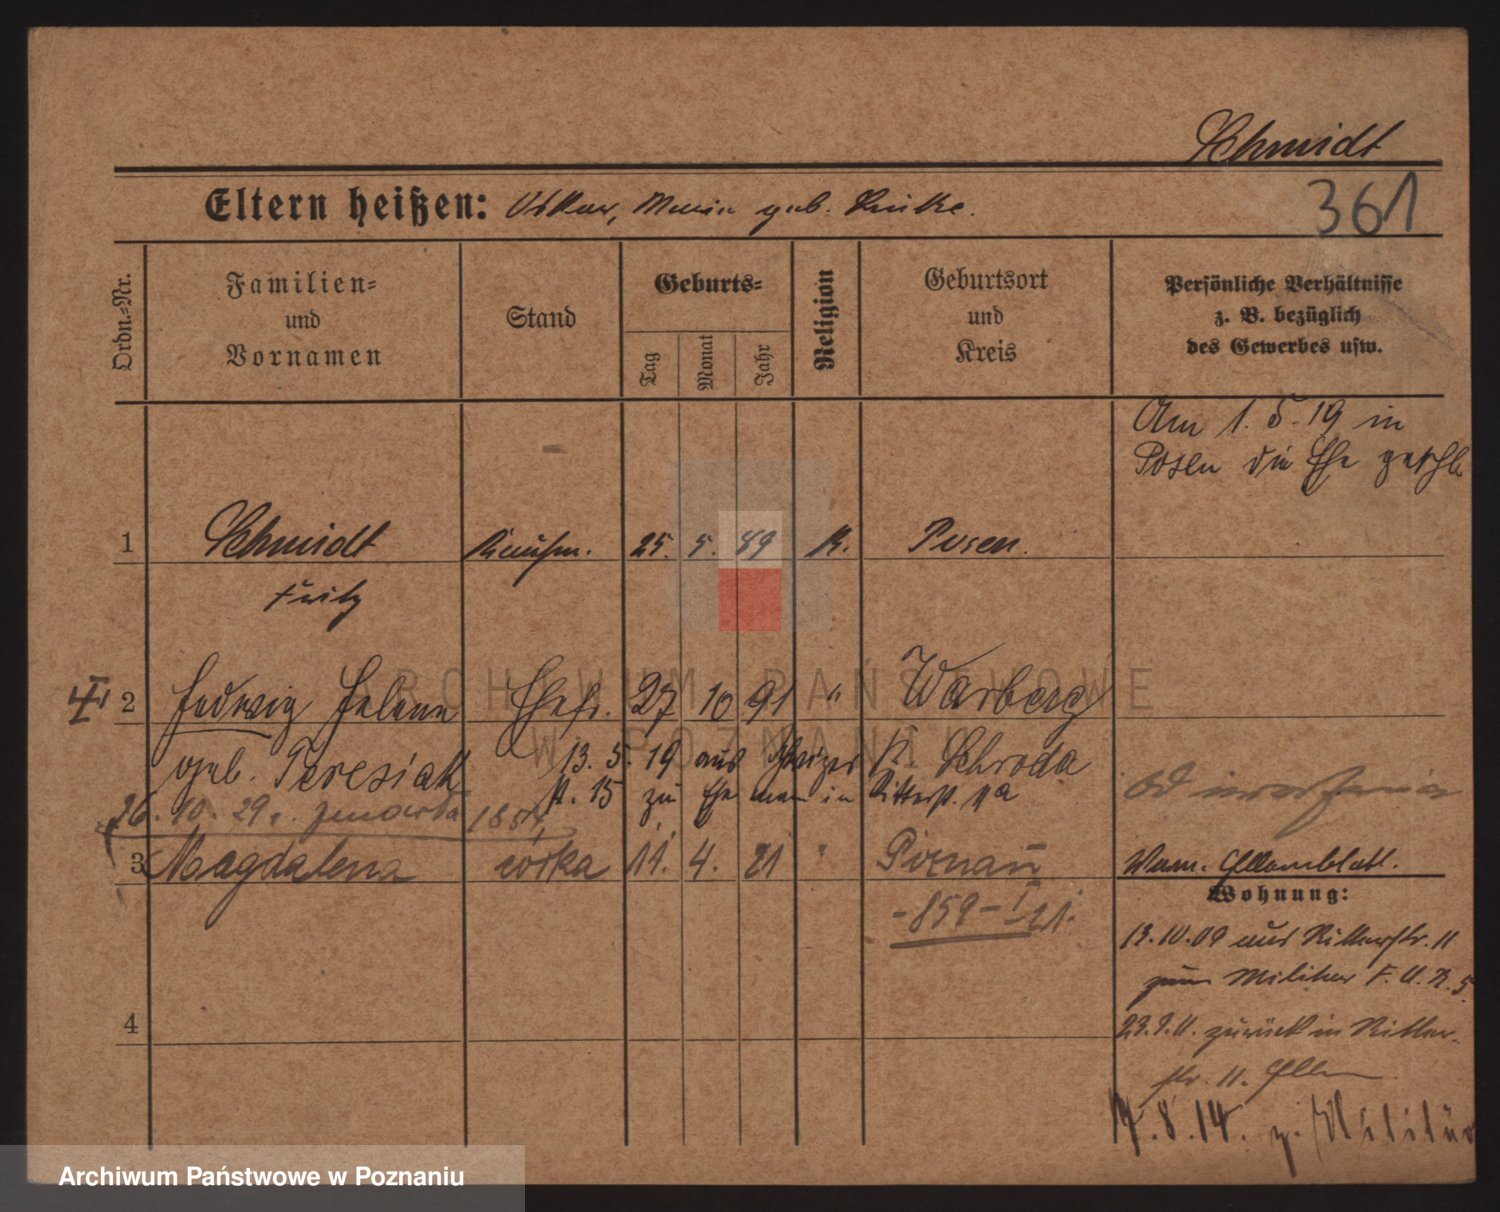 Schmidt
Eltern heißen: Oskar, Maria geb.
361
Ordn.-Nr.
Familien-
und
Vornamen
Stand
Geburts-
Tag
Monat
Jahr
Religion
Geburtsort
und
Kreis
Persönliche Verhältnisse
z. B. bezüglich
des Gewerbes usw.
Am 1. 5. 19 in
Posen die Ehe geschl.
1 Schmidt Kaufm. 25. 5. 89 K. Posen.
Fritz
2 Hedwig Helena Ehefr. 27 10 91 " Warberg
geb. Teresiak 13. 5. 19 aus K. Schroda
st. 15 zu Ehemann in Ritterst. 11a
26. 10. 29.
3 Magdalena córka 11. 4. 21 " Poznań
Elternblatt.
-859-I 21.
Wohnung:
13.10.09 aus Ritterstr. 11
zum Militär F. A. R. 5.
4
23.9.11. zurück in Ritter-
str. 11. Eltern
14.8.14. z. Militär
ARCHIWUM PAŃSTWOWE
W POZNANIU
Archiwum Państwowe w Poznaniu